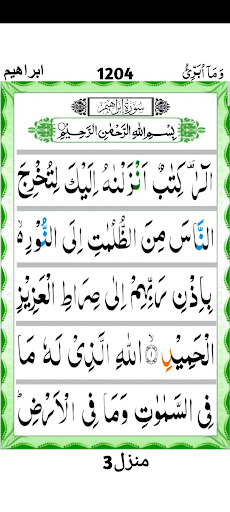 وَمَاۤ اُبَرِّئُ 1204 ابراهيم
سُوْرَةُ اِبْرٰهِيْم
بِسْمِ اللّٰهِ الرَّحْمٰنِ الرَّحِيْمِ
الٓرٰ ۚ كِتٰبٌ اَنْزَلْنٰهُ اِلَيْكَ لِتُخْرِجَ
النَّاسَ مِنَ الظُّلُمٰتِ اِلَى النُّوْرِ ۙ
بِاِذْنِ رَبِّهِمْ اِلٰى صِرَاطِ الْعَزِيْزِ
الْحَمِيْدِ ۙ﴿۱﴾ اللّٰهِ الَّذِىْ لَهٗ مَا
فِى السَّمٰوٰتِ وَمَا فِى الْاَرْضِ ؕ
منزل3